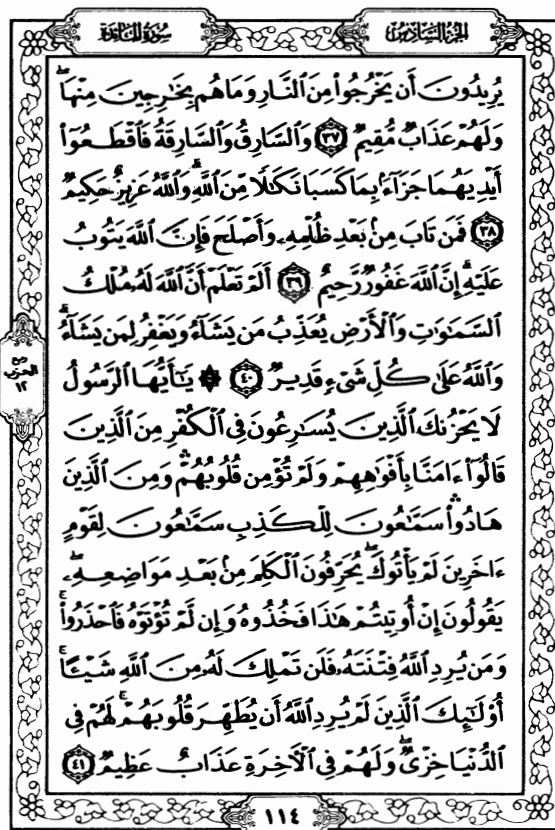 سُورَةُ المَائِدَة
الجُزْءُ السَّادِس
يُرِيدُونَ أَن يَخْرُجُوا۟ مِنَ ٱلنَّارِ وَمَا هُم بِخَٰرِجِينَ مِنْهَا ۖ
وَلَهُمْ عَذَابٌ مُّقِيمٌ ٣٧ وَٱلسَّارِقُ وَٱلسَّارِقَةُ فَٱقْطَعُوٓا۟
أَيْدِيَهُمَا جَزَآءًۢ بِمَا كَسَبَا نَكَٰلًا مِّنَ ٱللَّهِ ۗ وَٱللَّهُ عَزِيزٌ حَكِيمٌ
٣٨ فَمَن تَابَ مِنۢ بَعْدِ ظُلْمِهِۦ وَأَصْلَحَ فَإِنَّ ٱللَّهَ يَتُوبُ
عَلَيْهِ ۗ إِنَّ ٱللَّهَ غَفُورٌ رَّحِيمٌ ٣٩ أَلَمْ تَعْلَمْ أَنَّ ٱللَّهَ لَهُۥ مُلْكُ
ٱلسَّمَٰوَٰتِ وَٱلْأَرْضِ يُعَذِّبُ مَن يَشَآءُ وَيَغْفِرُ لِمَن يَشَآءُ ۗ
وَٱللَّهُ عَلَىٰ كُلِّ شَىْءٍ قَدِيرٌ ٤٠ ۞ يَٰٓأَيُّهَا ٱلرَّسُولُ
لَا يَحْزُنكَ ٱلَّذِينَ يُسَٰرِعُونَ فِى ٱلْكُفْرِ مِنَ ٱلَّذِينَ
قَالُوٓا۟ ءَامَنَّا بِأَفْوَٰهِهِمْ وَلَمْ تُؤْمِن قُلُوبُهُمْ ۛ وَمِنَ ٱلَّذِينَ
هَادُوا۟ ۛ سَمَّٰعُونَ لِلْكَذِبِ سَمَّٰعُونَ لِقَوْمٍ
ءَاخَرِينَ لَمْ يَأْتُوكَ ۖ يُحَرِّفُونَ ٱلْكَلِمَ مِنۢ بَعْدِ مَوَاضِعِهِۦ ۖ
يَقُولُونَ إِنْ أُوتِيتُمْ هَٰذَا فَخُذُوهُ وَإِن لَّمْ تُؤْتَوْهُ فَٱحْذَرُوا۟ ۚ
وَمَن يُرِدِ ٱللَّهُ فِتْنَتَهُۥ فَلَن تَمْلِكَ لَهُۥ مِنَ ٱللَّهِ شَيْـًٔا ۚ
أُو۟لَٰٓئِكَ ٱلَّذِينَ لَمْ يُرِدِ ٱللَّهُ أَن يُطَهِّرَ قُلُوبَهُمْ ۚ لَهُمْ فِى
ٱلدُّنْيَا خِزْىٌ ۖ وَلَهُمْ فِى ٱلْءَاخِرَةِ عَذَابٌ عَظِيمٌ ٤١
ربع
الحزب
١٢
١١٤